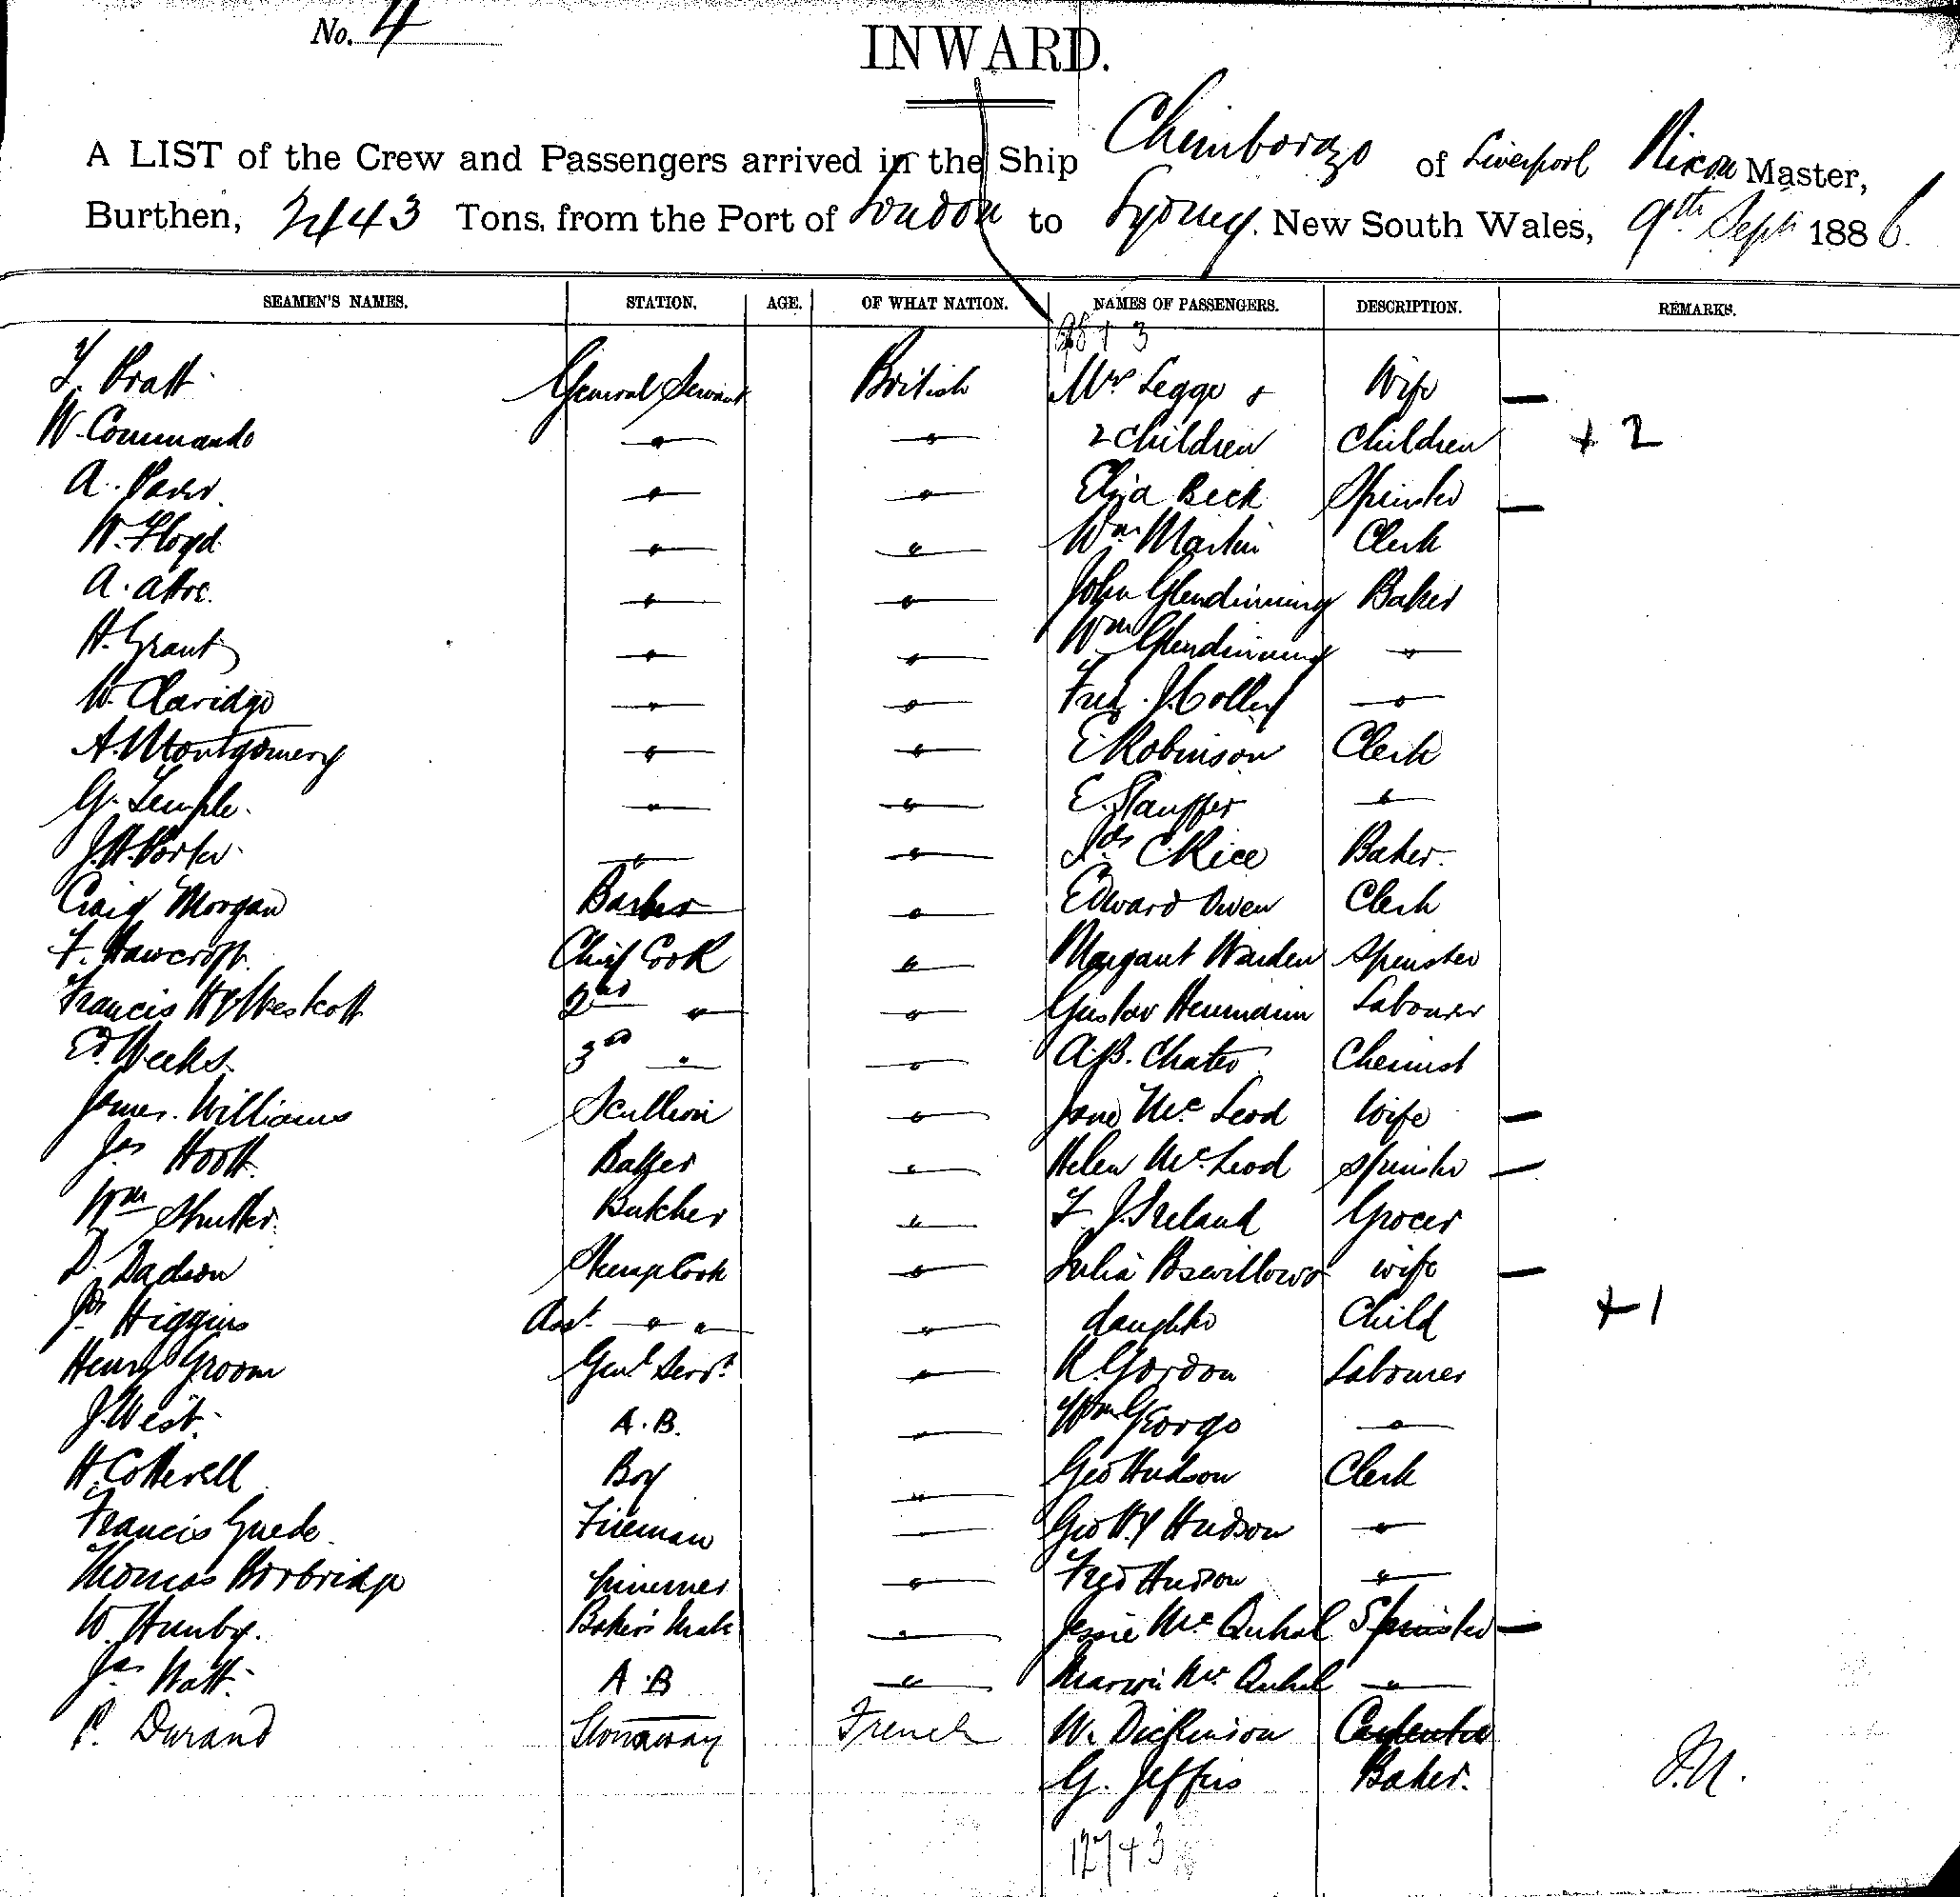 No. 4
INWARD.
A LIST of the Crew and Passengers arrived in the Ship Chimborazo of Liverpool Nixon Master,
Burthen, 2443 Tons, from the Port of London to Sydney. New South Wales, 9th Sept 1886.
SEAMEN'S NAMES. STATION. AGE. OF WHAT NATION. NAMES OF PASSENGERS. DESCRIPTION. REMARKS.
+ 3
Pratt General Servant British Mrs Legge & Wife —
W. Commando " " 2 Children Children + 2
A. " " Eliza Beck Spinster —
W. Floyd " " Wm Martin Clerk
A. Attre. " " John Glendinning Baker
H. Grant " " Wm Glendinning "
W. Claridge " " Fred. J. "
A. Montgomery " " E Robinson Clerk
G. Temple. " " E. Stauffer "
J.H. Porter " " C. Rice Baker.
Craig Morgan Barber " Edward Owen Clerk
F. Hawcroft. Chief Cook " Margaret Warden Spinster
Francis Hy Westcott 2nd " " Gustav Heumann Labourer
Ed. Weeks. 3rd " " A.B. Chater Chemist
James. Williams Scullion " Jane McLeod Wife —
Jas Hoott. Baker " Helen McLeod Spinster —
Wm Shutter. Butcher " J. Ireland Grocer
D. Dadson Cook " Julia wife —
Higgins Asst. " " " daughter Child + 1
Henry Groom Genl Servt. " R. Gordon Labourer
J. West. A.B. " Wm George "
H. Cotterell Boy " Geo Hudson Clerk
Francis Guede Fireman — Geo Hy Hudson "
Thomas Horbridge Trimmer " Fred Hudson "
W. Hunby. Baker's Mate " Jessie Mc Spinster —
Jas Watt. A.B " Mc "
P. Durand Stowaway French W. Dickinson Carpenter
G. Jeffris Baker.
J.N.
127 + 3